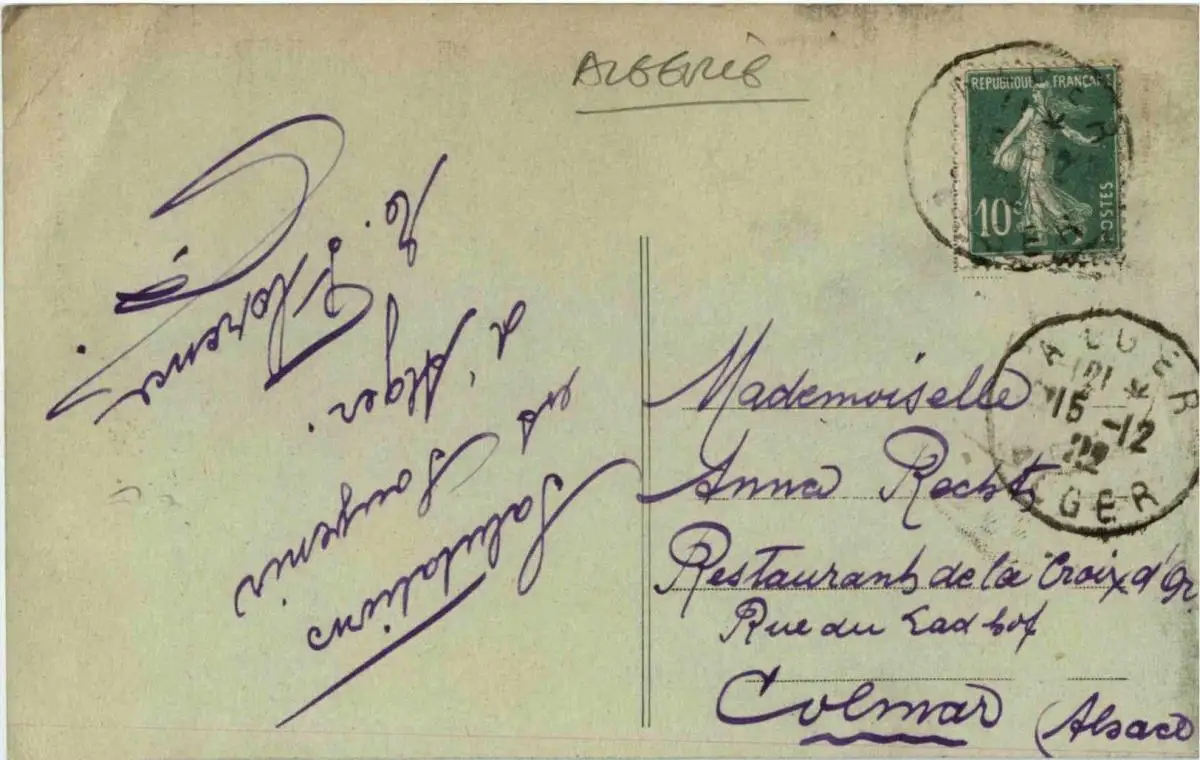 ALGERIE
REPUBLIQUE FRANÇAISE
10c
POSTES
ALGER
12
15-12
22
ALGER
Mademoiselle
Anna Rechts
Restaurant de la Croix d'Or
Rue du Ladhof
Colmar (Alsace
Salutations
et Souvenir
d'Alger.